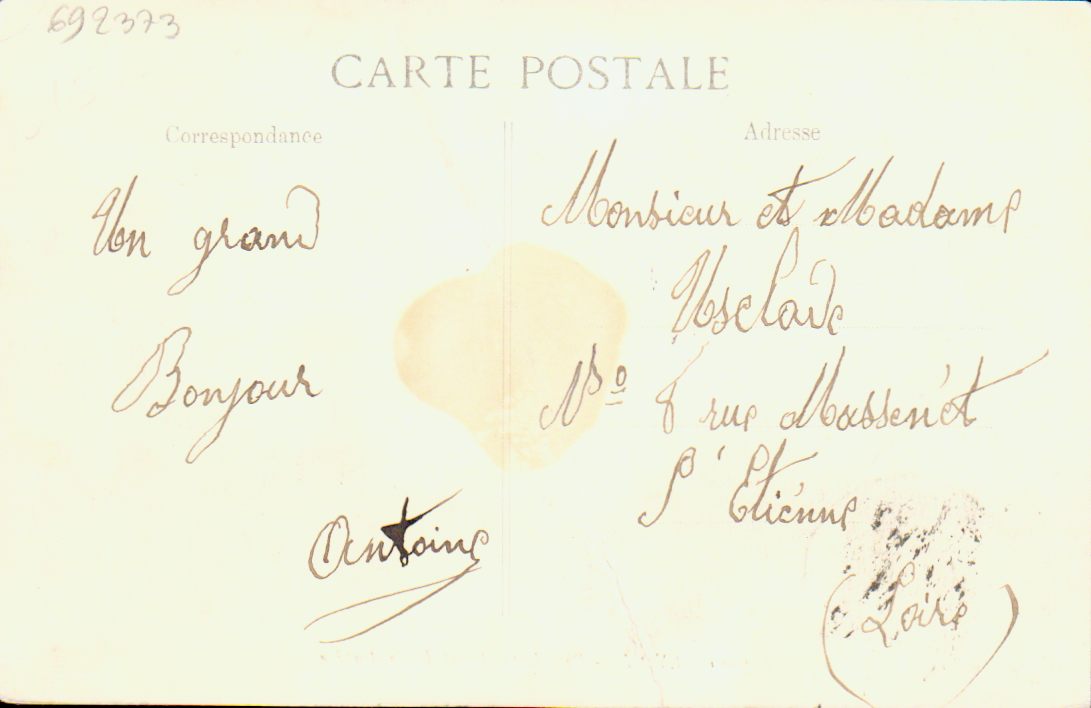 692373
CARTE POSTALE
Correspondance
Un grand
Bonjour
Antoine
Adresse
Monsieur et Madame
Usclade
No 8 rue Massenét
S' Etiénne
(Loire)